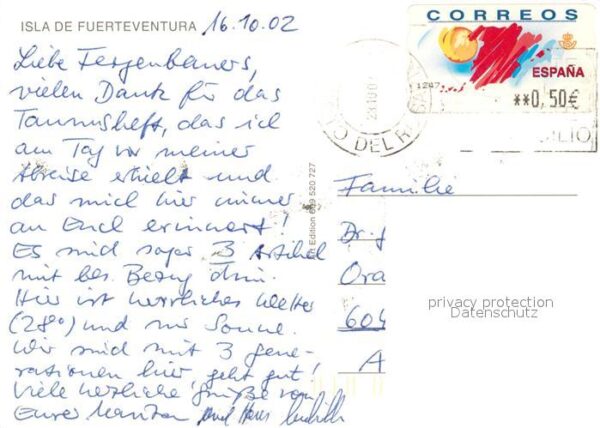 ISLA DE FUERTEVENTURA 16.10.02
Liebe Fergenbauers,
vielen Dank für das
Taunusheft, das ich
am Tag vor meiner
Abreise erhielt und
das mich hier immer
an Euch erinnert!
Es sind sogar 3 Artikel
mit bes. Bezug drin.
Hier ist herrliches Wetter
(28°) und nur Sonne.
Wir sind mit 3 Gene-
rationen hier, geht gut!
Viele herzliche Grüße von
Eurer und Hans
CORREOS
ESPAÑA
**0,50€
1247
DEL
Edition 520 727
Familie
Dr. J
Ora
604
A
privacy protection
Datenschutz